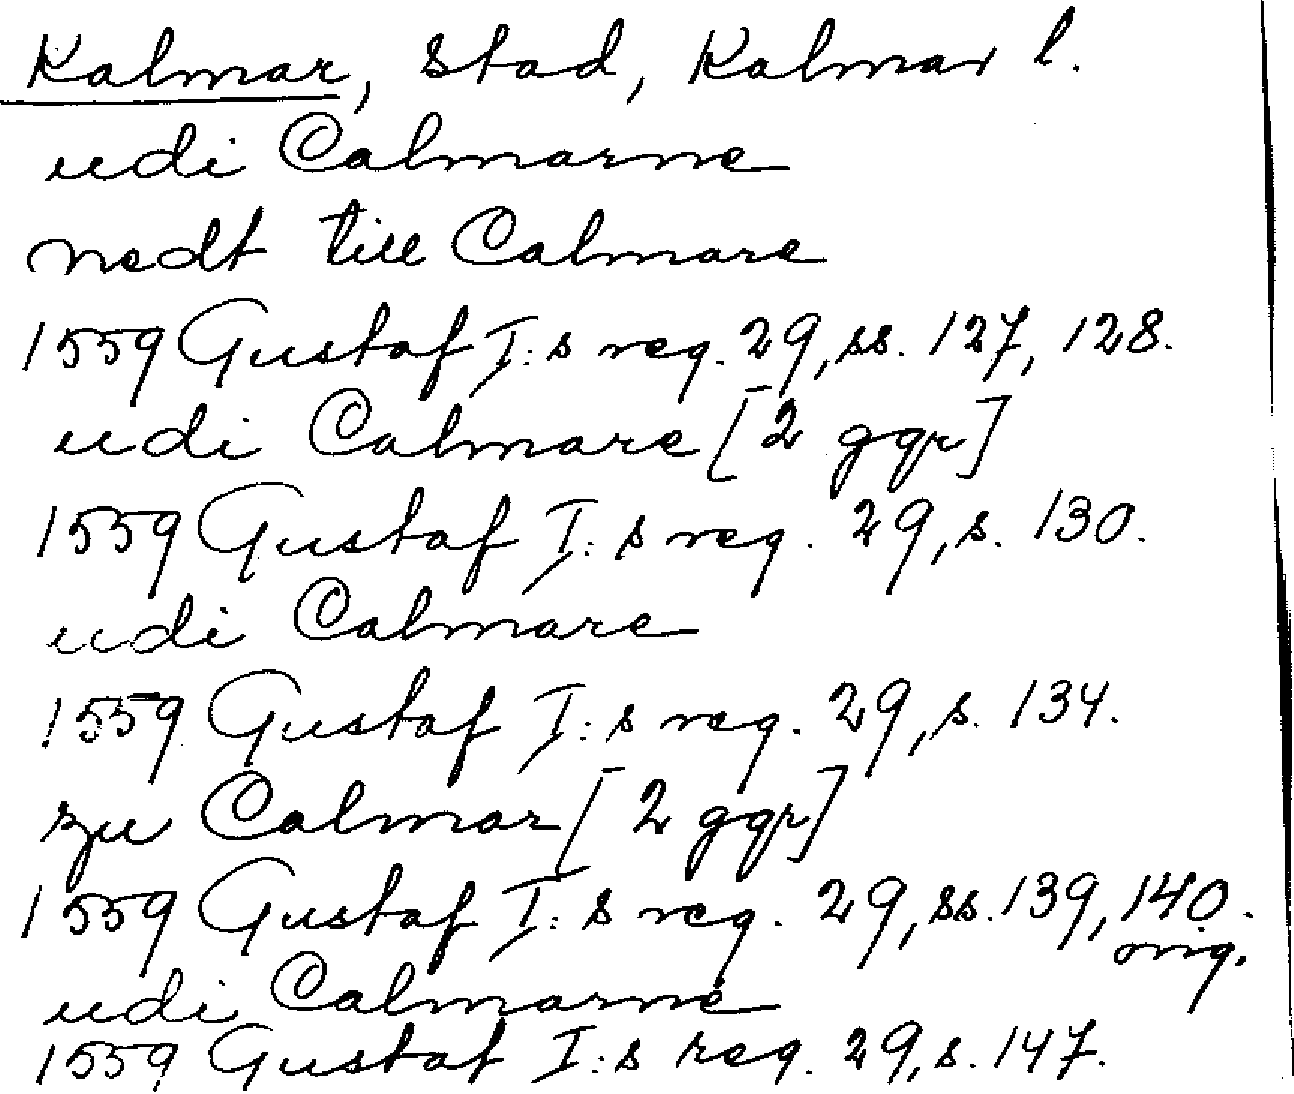 Kalmar, Stad, Kalmar l.
udi Calmarne
nedt till Calmare
1559 Gustaf I:s reg. 29, ss. 127, 128.
udi Calmare [2 ggr]
1559 Gustaf I:s reg. 29, s. 130.
udi Calmare
1559 Gustaf I:s reg. 29, s. 134.
zu Calmar [2 ggr]
1559 Gustaf I:s reg. 29, ss. 139, 140.
orig.
udi Calmarne
1559 Gustaf I:s reg. 29, s. 147.